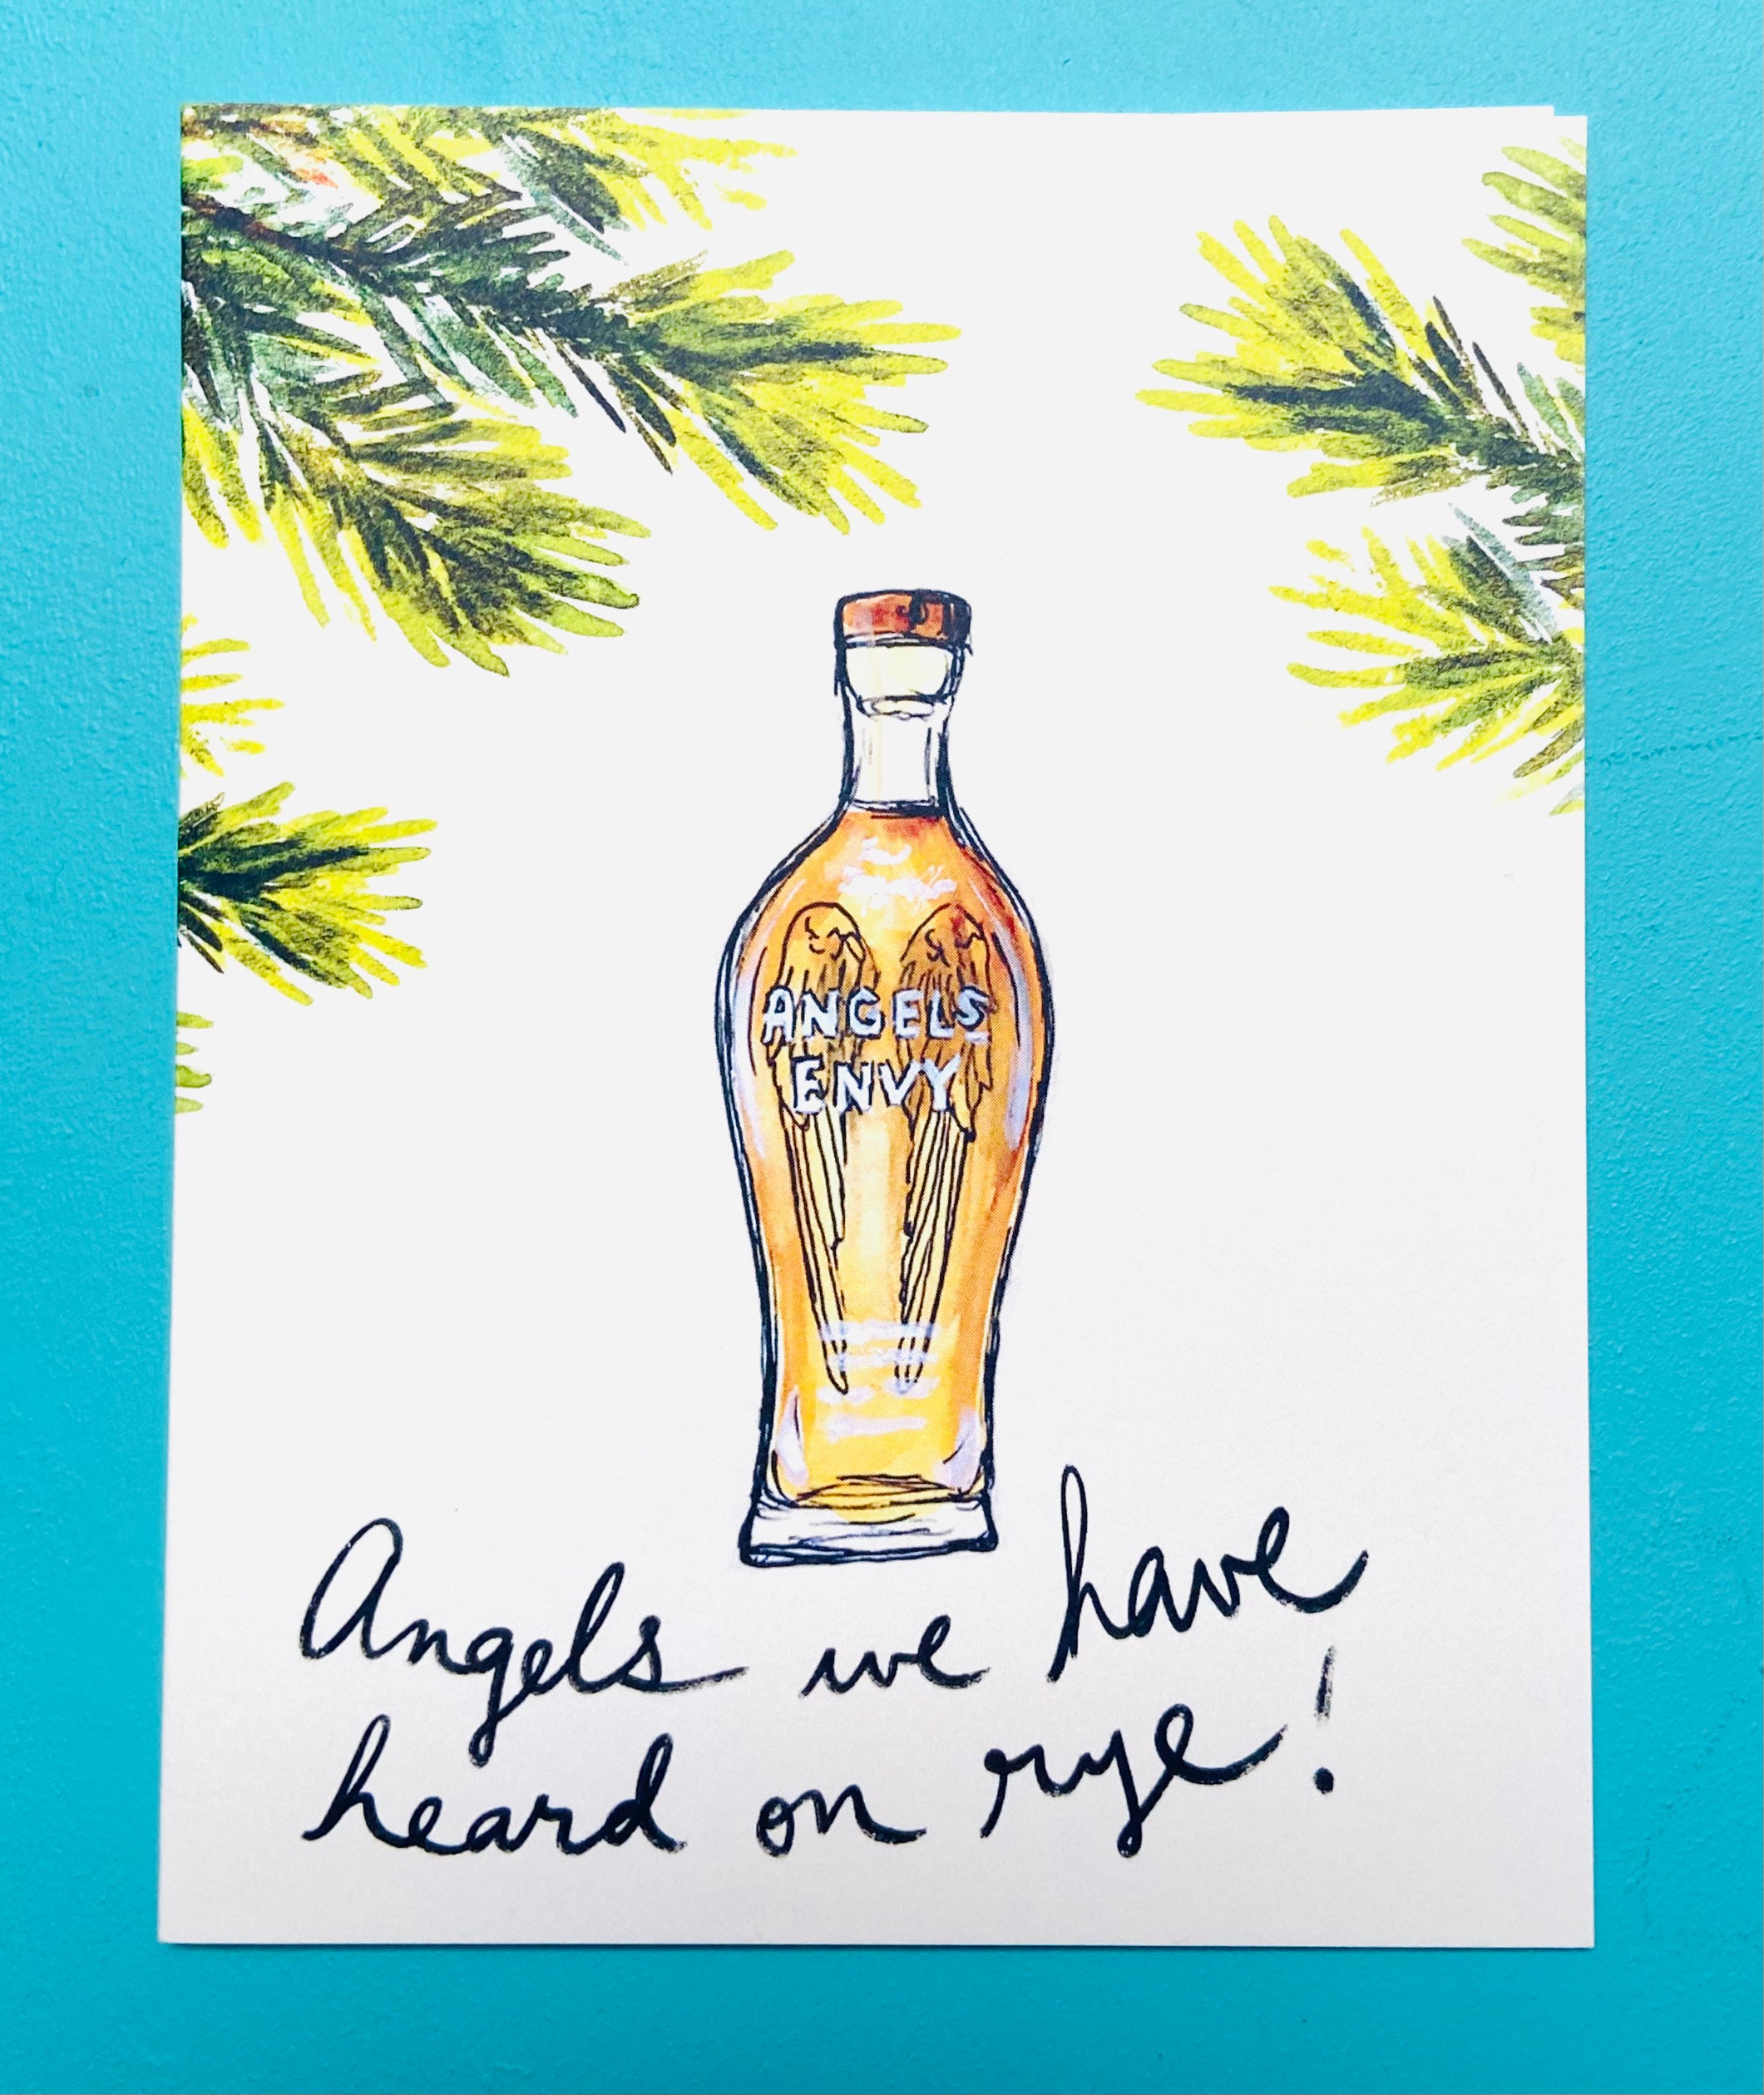 ANGELS
ENVY
Angels we have
heard on rye!